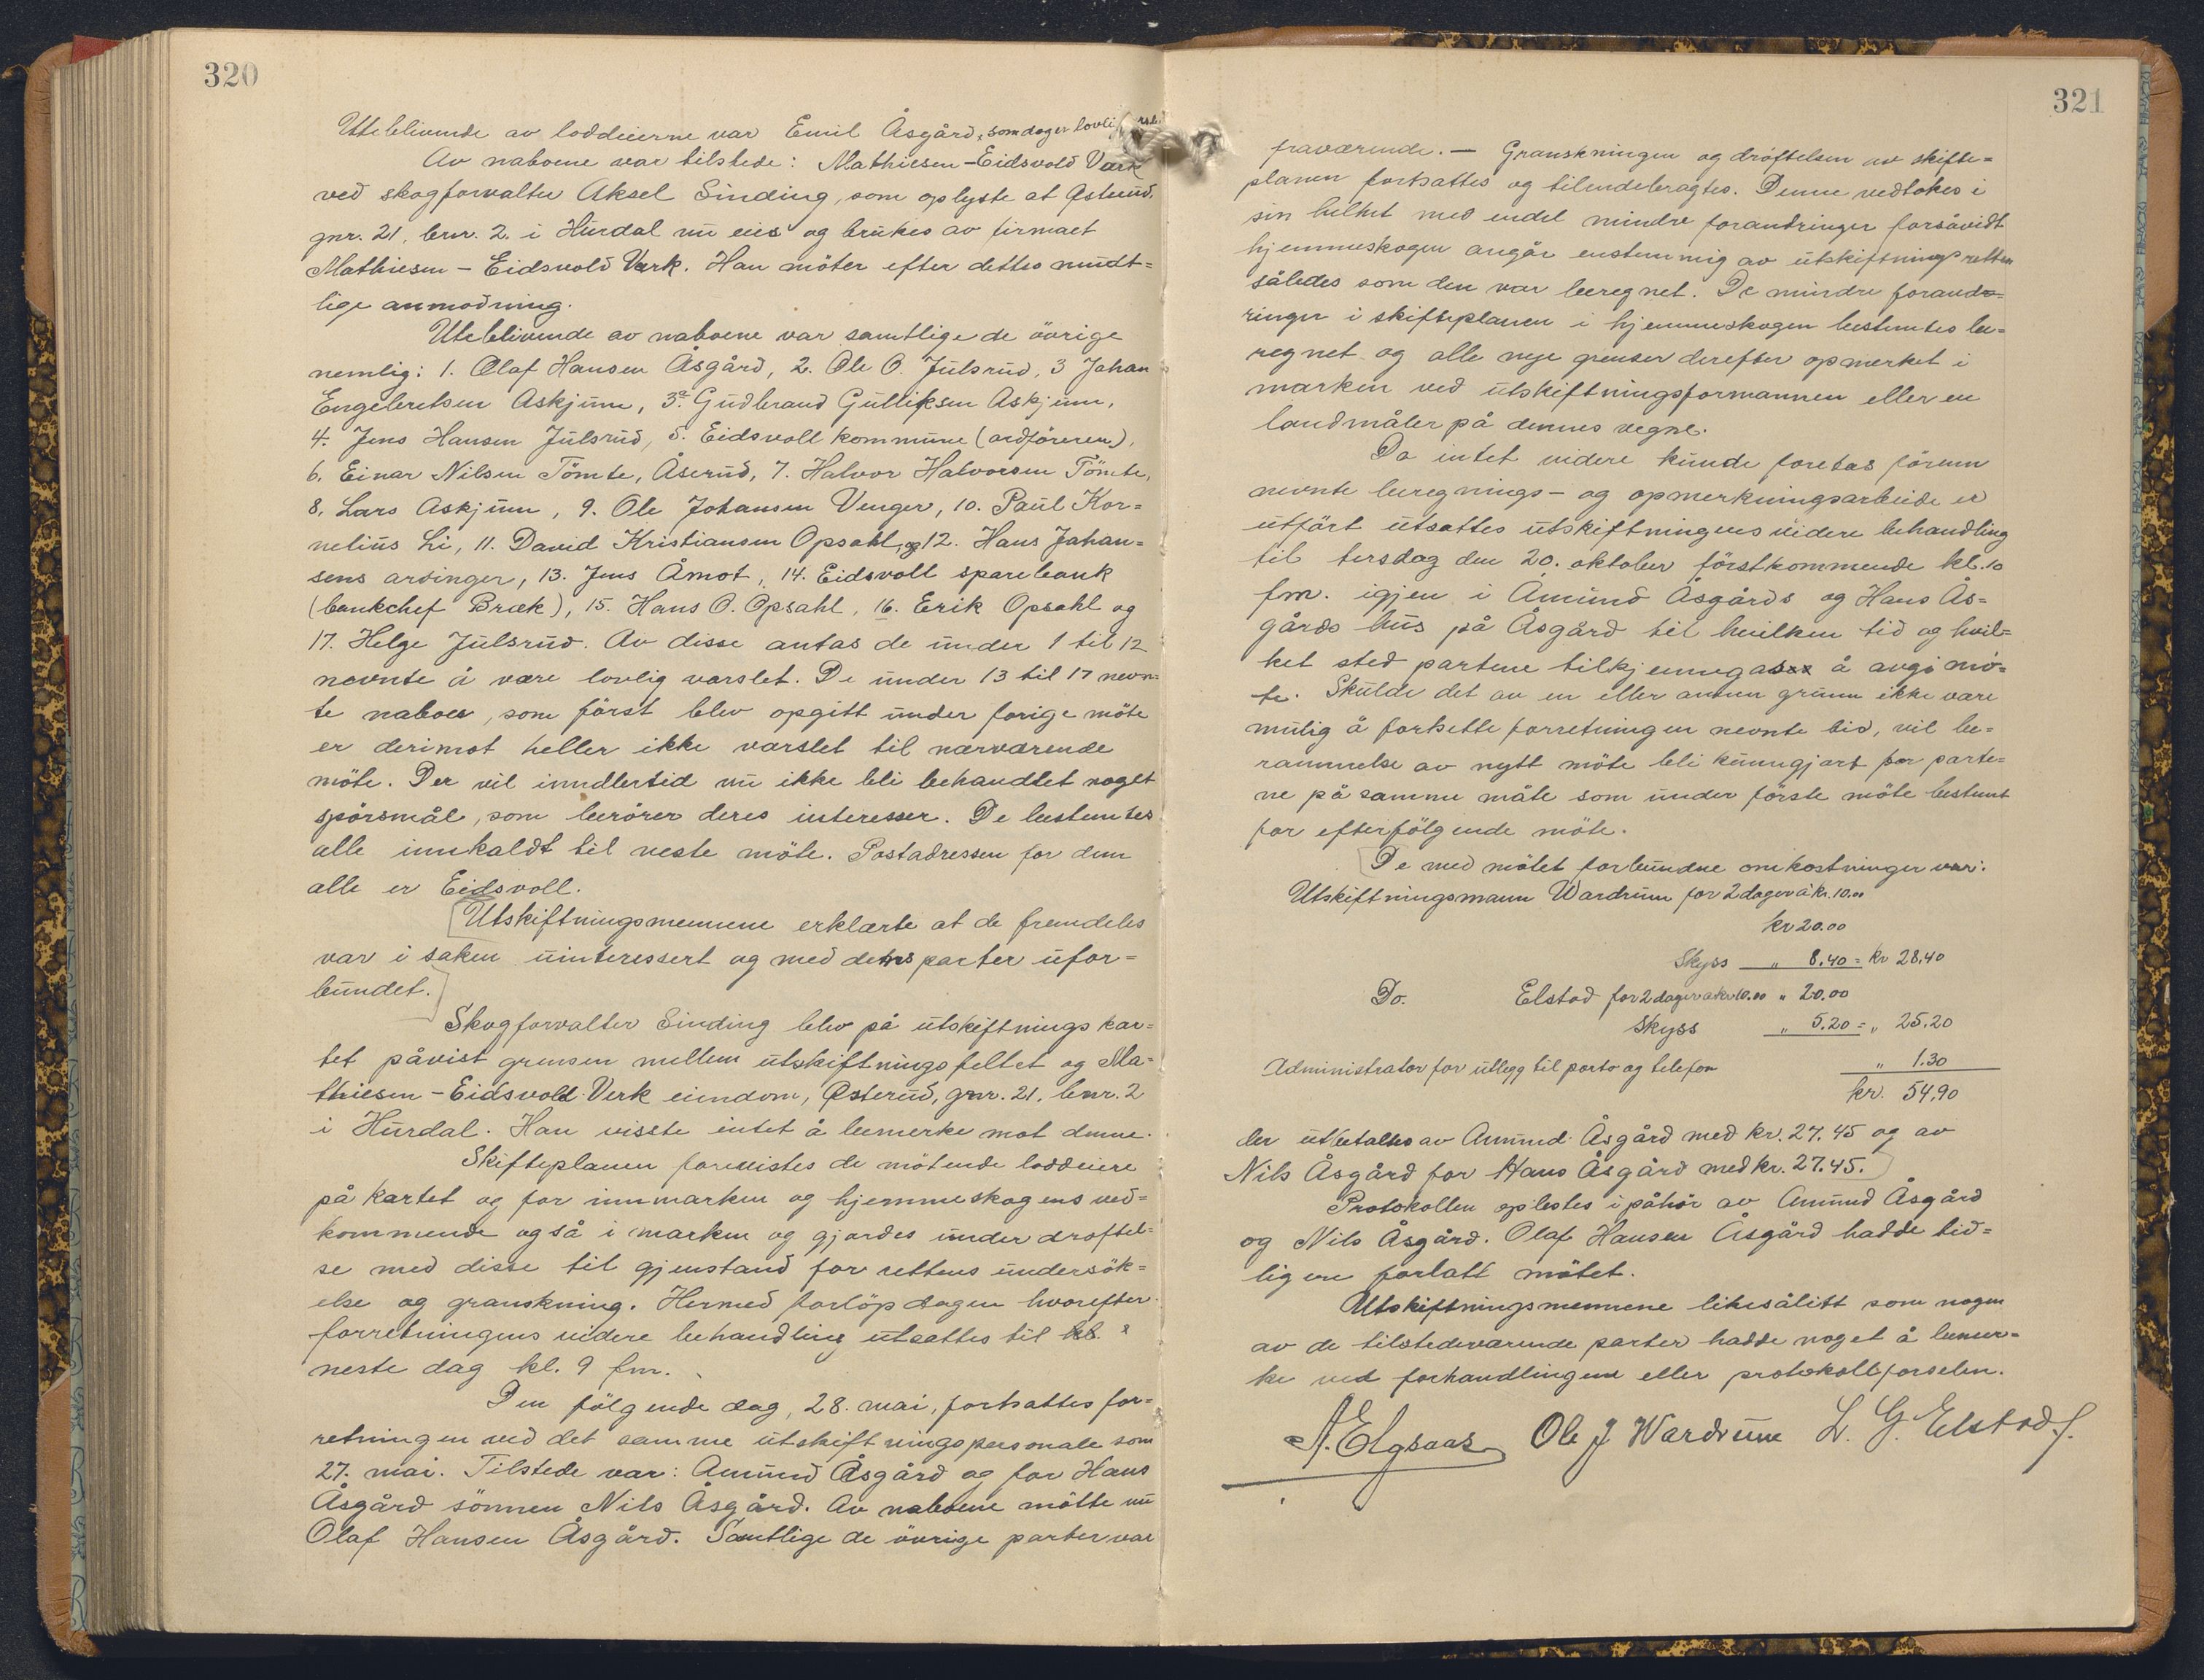 320
Uteblivende av loddeierne var Emil Åsgård, som dog er lovlig
Av naboene var tilstede: Mathiesen-Eidsvold Værk
ved skogforvalter Aksel Sinding, som oplyste at Østerud,
gnr. 21, bnr. 2. i Hurdal nu eies og brukes av firmaet
Mathiesen - Eidsvold Verk. Han möter efter dettes mundt=
lige anmodning.
Uteblivende av naboene var samtlige de övrige
nemlig: 1. Olaf Hansen Åsgård, 2. Ole O. Julsrud, 3 Johan
Engebretsen Askjum, 3a. Gudbrand Gulliksen Askjum,
4. Jens Hansen Julsrud, 5. Eidsvoll kommune (ordföreren),
6. Einar Nilsen Tömte, Åserud, 7. Halvor Halvorsen Tömte,
8. Lars Askjum, 9. Ole Johansen Venger, 10. Paul Kor=
nelius Li, 11. David Kristiansen Opsahl og 12. Hans Johan=
sens arvinger, 13. Jens Åmot, 14. Eidsvoll sparebank
(bankchef Bræk), 15. Hans O. Opsahl, 16. Erik Opsahl og
17. Helge Julsrud. Av disse antas de under 1 til 12
nevnte å være lovlig varslet. De under 13 til 17 nevn-
te naboer, som först blev opgitt under forrige möte
er derimot heller ikke varslet til nærværende
möte. Der vil imidlertid nu ikke bli behandlet noget
spörsmål, som berörer deres interesser. De bestemtes
alle innkaldt til neste möte. Postadressen for dem
alle er Eidsvoll.
Utskiftningsmennene erklærte at de fremdeles
var i saken uinteressert og med dens parter ufor=
bundet.
Skogforvalter Sinding blev på utskiftningskar=
tet påvist grensen mellem utskiftningsfeltet og Ma=
thiesen - Eidsvold Verk eiendom, Østerud, gnr. 21, bnr. 2
i Hurdal. Han visste intet å bemerke mot denne.
Skifteplanen forevistes de mötende loddeiere
på kartet og for innmarken og hjemmeskogens ved=
kommende også i marken og gjordes under dröftel=
se med disse til gjenstand for rettens undersök=
else og granskning. Hermed forlöp dagen hvorefter
forretningens videre behandling utsattes til
neste dag kl. 9 fm.
Den fölgende dag, 28. mai, fortsattes for=
retningen ved det samme utskiftningspersonale som
27. mai. Tilstede var: Amund Åsgård og for Hans
Åsgård sönnen Nils Åsgård. Av naboene mötte nu
Olaf Hansen Åsgård. Samtlige de övrige parter var
321
fraværende. - Granskningen og dröftelsen av skifte=
planen fortsattes og tilendebragtes. Denne vedtokes i
sin helhet med endel mindre forandringer forsåvidt
hjemmeskogen angår enstemmig av utskiftningsretten
således som den var beregnet. De mindre forand=
ringer i skifteplanen i hjemmeskogen bestemtes be=
regnet og alle nye grenser derefter opmerket i
marken ved utskiftningsformannen eller en
landmåler på dennes vegne.
Da intet videre kunde foretas förenn
nevnte beregnings- og opmerkningsarbeide er
utfört utsattes utskiftningens videre behandling
til tirsdag den 20. oktober förstkommende kl. 10
fm. igjen i Amund Åsgårds og Hans Ås=
gårds hus på Åsgård til hvilken tid og hvil=
ket sted partene tilkjennegas å avgi mö=
te. Skulde det av en eller annen grunn ikke være
mulig å fortsette forretningen nevnte tid, vil be=
rammelse av nytt möte bli kunngjort for parte=
ne på samme måte som under förste möte bestemt
for efterfölgende möte.
De med mötet forbundne omkostninger var:
Utskiftningsmann Wardrum for 2 dager à kr. 10.00
kr 20.00
Skyss " 8.40 = kr 28.40
Do. Elstad for 2 dager à kr 10.00 " 20.00
Skyss " 5.20 = " 25.20
Administrator for utlegg til porto og telefon " 1.30
kr. 54.90
der utbetaltes av Amund Åsgård med kr. 27.45 og av
Nils Åsgård for Hans Åsgård med kr. 27.45.
Protokollen oplestes i påhör av Amund Åsgård
og Nils Åsgård. Olaf Hansen Åsgård hadde tid=
ligere forlatt mötet.
Utskiftningsmennene likesålitt som nogen
av de tilstedeværende parter hadde noget å bemer=
ke ved forhandlingene eller protokollforselen.
A. Elgsaas Ole J Wardrum L. G. Elstad.